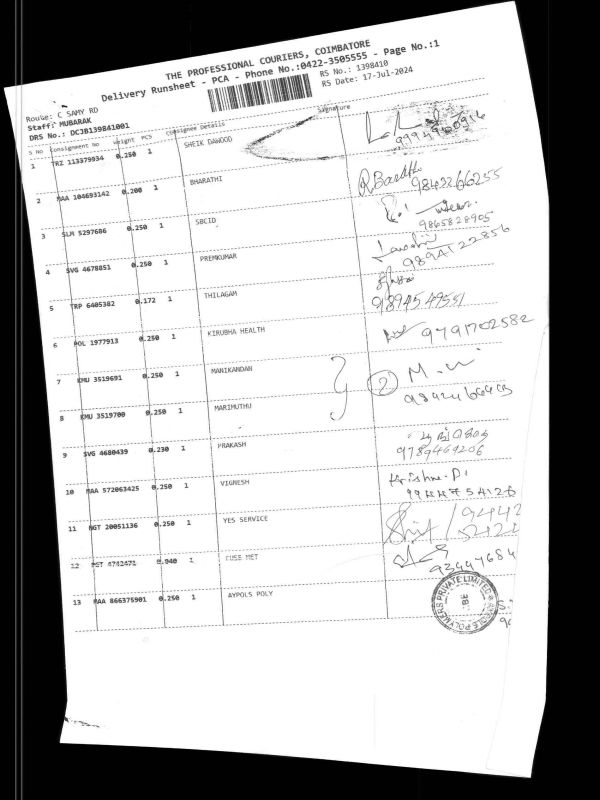 THE PROFESSIONAL COURIERS, COIMBATORE
Delivery Runsheet - PCA - Phone No.:0422-3505555 - Page No.:1
RS No.: 1398410
RS Date: 17-Jul-2024
Route: C SAMY RD
Staff: MUBARAK
DRS No.: DCJB139841001
S No Consignment No Weight PCS Consignee Details Signature
1 TRZ 113379934 0.250 1 SHEIK DAWOOD
2 MAA 104693142 0.200 1 BHARATHI 9842266255
3 SLM 5297686 0.250 1 SBCID 9865828905
4 SVG 4678851 0.250 1 PREMKUMAR 9894122856
5 TRP 6405382 0.172 1 THILAGAM 9894549551
6 POL 1977913 0.250 1 KIRUBHA HEALTH 9791702582
7 KMU 3519691 0.250 1 MANIKANDAN
8 KMU 3519700 0.250 1 MARIMUTHU 2
9 SVG 4680439 0.230 1 PRAKASH 9789469206
10 MAA 572063425 0.250 1 VIGNESH Krishna.P
11 NGT 20051136 0.250 1 YES SERVICE 9442
12 4742471 0.940 1 FUSE MET
13 MAA 866375901 0.250 1 AYPOLS POLY
POLYMERS PRIVATE LIMITED